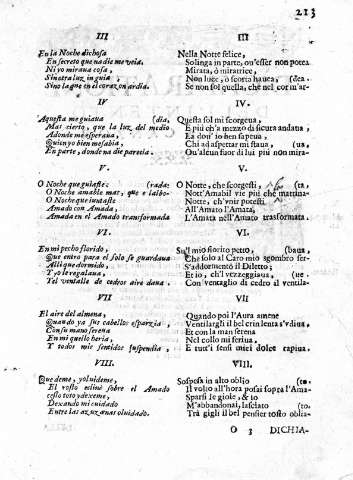 213
III
En la Noche dichosa
En secreto que nadie me veìa.
Ni yo mirava cosa,
Sin otra luz, in guia,
Sino la que en el corazon ardia.
IV
Aquesta me guiava (dia
Mas cierto, que la luz, del medio
Adonde me esperava,
Quien yo bien me sabia,
En parte, donde nadie parecia.
V.
O Noche que guiaste: (rada:
O Noche amable mas, que el albo-
O Noche que juntaste
Amado con Amada,
Amada en el Amado transformada
VI.
En mi pecho florido,
Que entro para el solo se guardava
Alli que dormido,
Y yo le regalava,
Y el ventalle de cedros aire dava.
VII
El aire del almena,
Quando ya sus cabellos esparzia,
Con su mano serena
En mi cuello heria,
Y todos mis sentidos suspendia,
VIII.
Quedeme, y olvideme,
El rostro recliné sobre el Amado
cesso todo y dexeme,
Dexando mi cuidado
Entre las azuzenas olvidado.
III
Nella Notte felice,
Solinga in parte, ov'esser non potea
Mirata, ò miratrice,
Non luce, ò scorta havea, (dea.
Se non sol quella, che nel cor m'ar-
IV.
Questa sol mi scorgena,
E più ch'a mezzo dì sicura andava,
La dov' io ben sapeva,
Chi ad aspettar mi stava (va,
Ov'alcun fuor di lui più non mira-
V.
O Notte, che scorgesti, (ta
Nott'Amabil vie più che mattina-
Notte, ch'vnir potesti
All'Amato l'Amata,
L'Amata nell'Amato trasformata.
VI.
Su'l mio fiorito petto, (bava,
Che solo al Caro mio sgombro ser-
S'addormentò il Diletto;
Et io, ch'il vezzeggiava, (va
Con ventaglio di cedro al ventila-
VII
Quando poi l'Aura amene
Ventilargli il bel crin lenta s'vdiva,
Et con la man serena
Nel collo mi feriva,
E tutt'i sensi miei dolce rapiva.
VIII.
Sospesa in alto oblio (to.
Il volto all'hora posai sopra l'Ama-
Sparsi le gioie, & io
M'abbandonai, lasciato (to.
Trà gigli il bel pensier tosto oblia-
O 3 DICHIA-